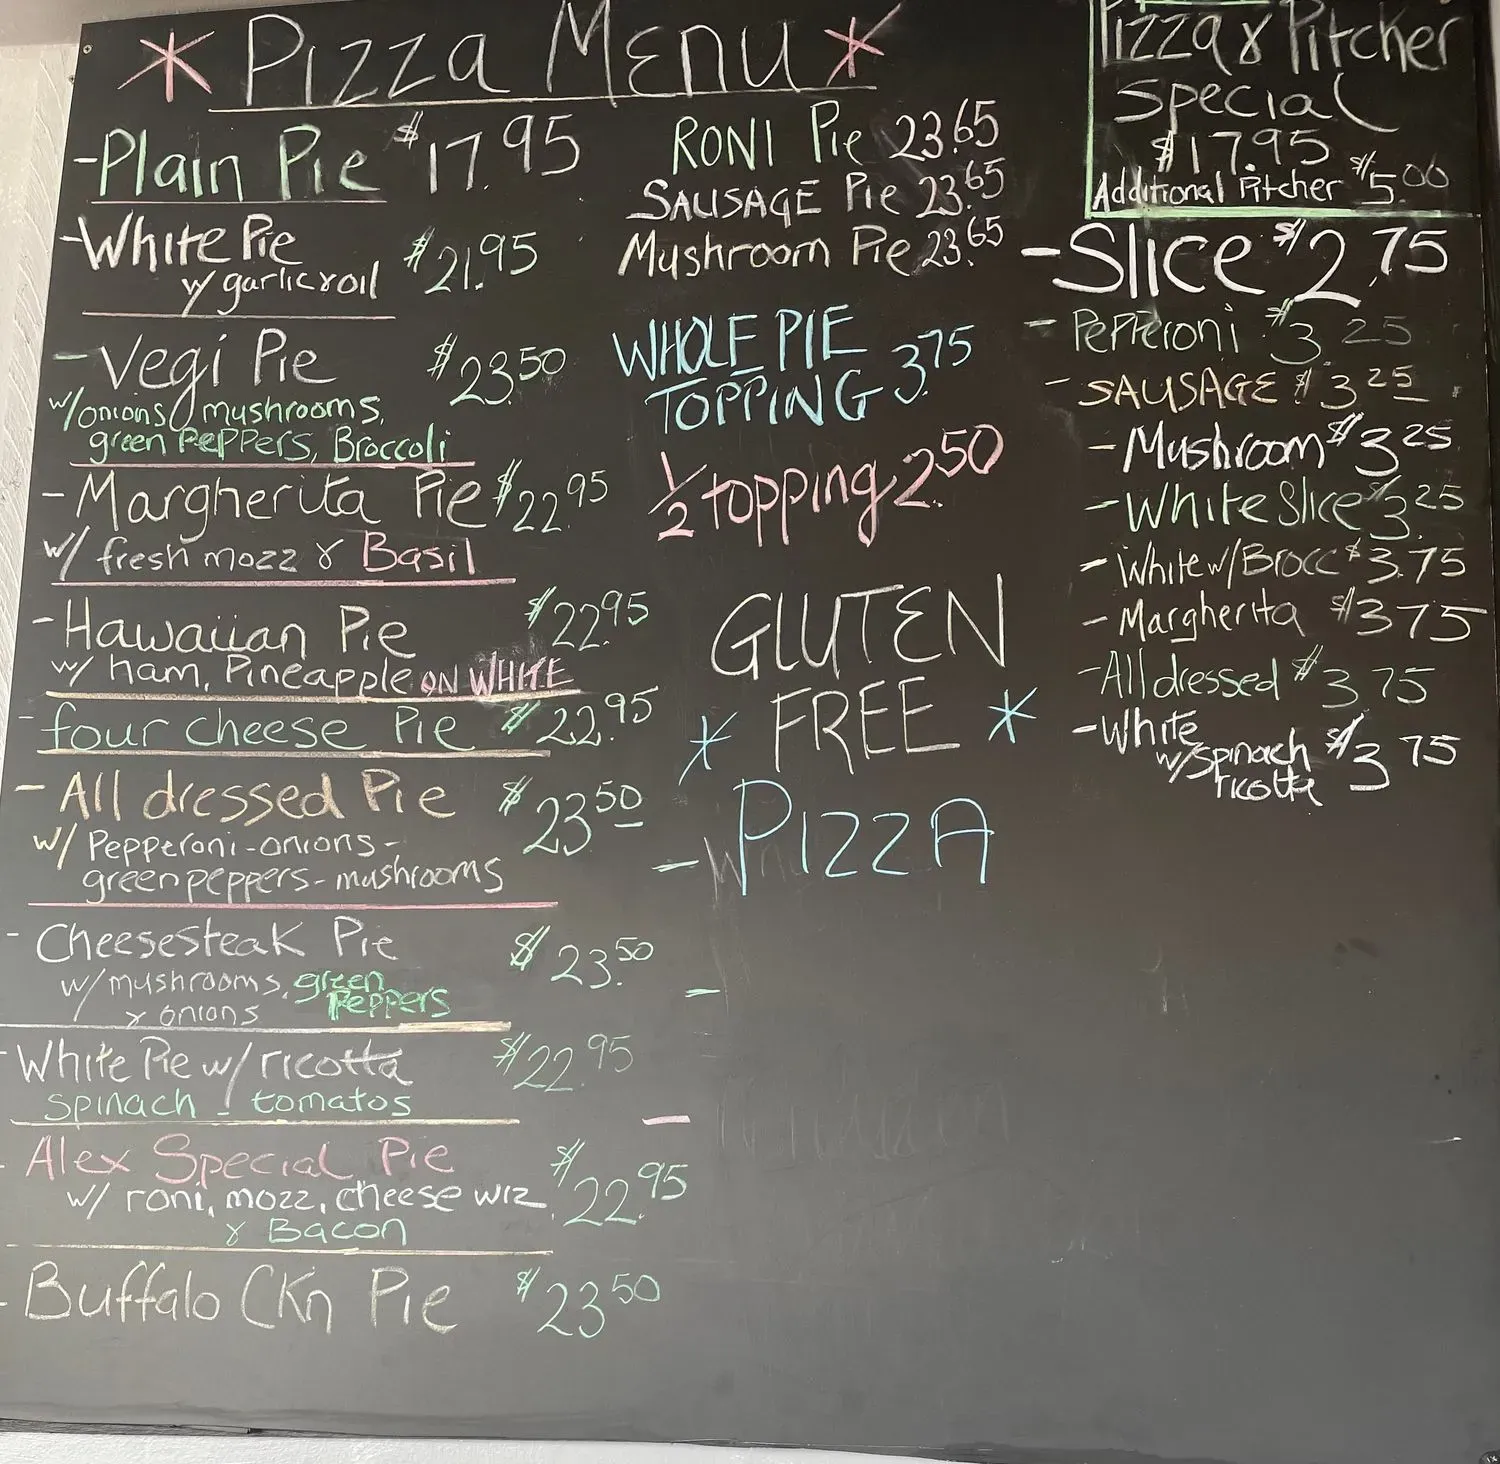 * Pizza Menu *
-Plain Pie $17.95
-White Pie $21.95
w/ garlic & oil
-Vegi Pie $23.50
w/onions mushrooms,
green Peppers, Broccoli
-Margherita Pie $22.95
w/ fresh mozz & Basil
-Hawaiian Pie $22.95
w/ ham, Pineapple ON WHITE
-four cheese Pie $22.95
-All dressed Pie $23.50
w/ Pepperoni-onions-
green peppers-mushrooms
-Cheesesteak Pie $23.50
w/mushrooms, green
Peppers
& onions
-White Pie w/ ricotta $22.95
spinach - tomatos
-Alex Special Pie $22.95
w/ roni, mozz, cheese wiz
& Bacon
-Buffalo Ckn Pie $23.50
RONI Pie 23.65
SAUSAGE Pie 23.65
Mushroom Pie 23.65
WHOLE PIE
TOPPING 3.75
1/2 topping 2.50
GLUTEN
* FREE *
- PIZZA
Pizza & Pitcher
Special
$17.95
Additional Pitcher $5.00
-Slice $2.75
-Pepperoni $3.25
-SAUSAGE $3.25
-Mushroom $3.25
-White Slice $3.25
-White w/Brocc $3.75
-Margherita $3.75
-All dressed $3.75
-White $3.75
w/spinach
ricotta